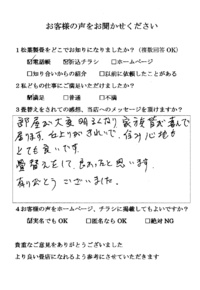 お客様の声をお聞かせください
1松葉製畳をどこでお知りになりましたか?(複数回答OK)
☑電話帳 ☑折込チラシ □ホームページ
□知り合いからの紹介 □以前に依頼したことがある
2私どもの仕事にご満足いただけましたか?
☑満足 □普通 □不満
3畳替えをされての感想、当店へのメッセージを頂けますか?
部屋が大変明るくなり家族皆が喜んで
居ります。仕上りがきれいで、住み心地も
とても良いです。
畳替えをして良かったと思います。
ありがとうございました。
4お客様の声をホームページ、チラシに掲載してもよいですか?
☑実名でもOK □匿名ならOK □絶対NG
貴重なご意見をありがとうございました
より良い畳店になれるよう参考にさせていただきます